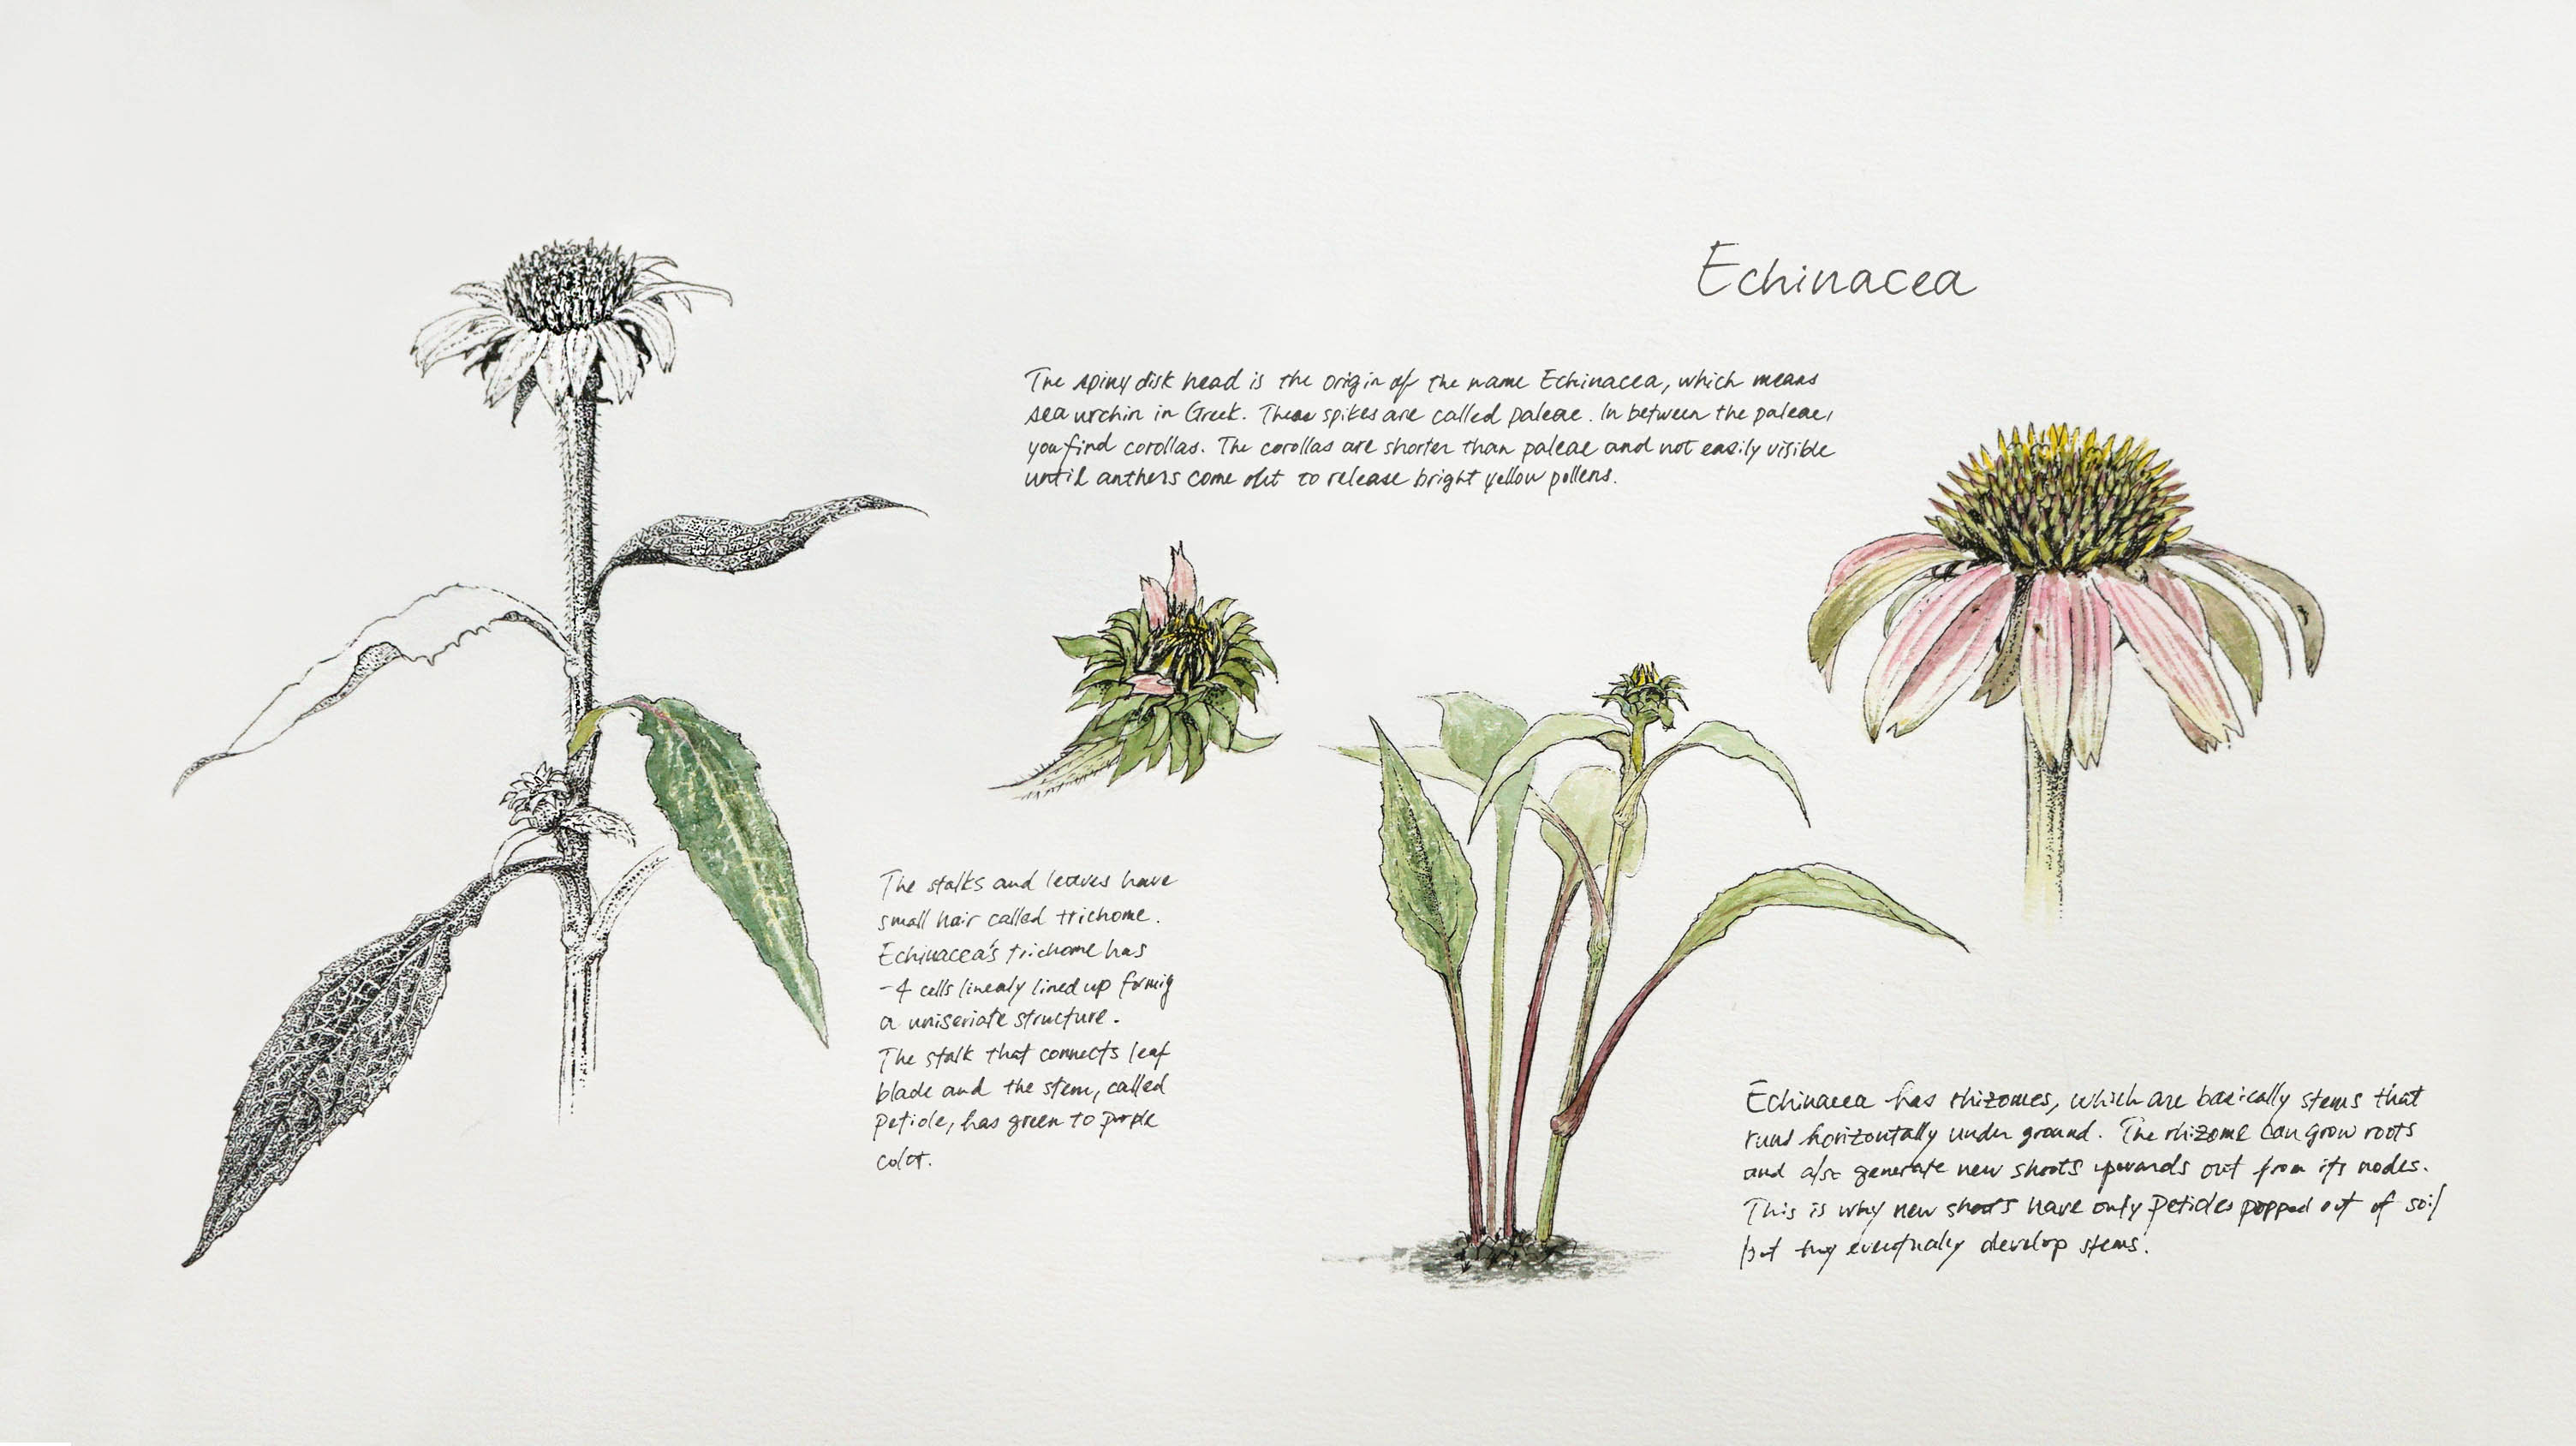 Echinacea
The spiny disk head is the origin of the name Echinacea, which means
sea urchin in Greek. These spikes are called paleae. In between the paleae,
you find corollas. The corollas are shorter than paleae and not easily visible
until anthers come out to release bright yellow pollens.
The stalks and leaves have
small hair called trichome.
Echinacea's trichome has
-4 cells linealy lined up formig
a uniseriate structure.
The stalk that connects leaf
blade and the stem, called
petiole, has green to purple
color.
Echinacea has rhizomes, which are basically stems that
runs horizontally under ground. The rhizome can grow roots
and also generate new shoots upwards out from its nodes.
This is why new shoots have only petioles popped out of soil
but they eventually develop stems.